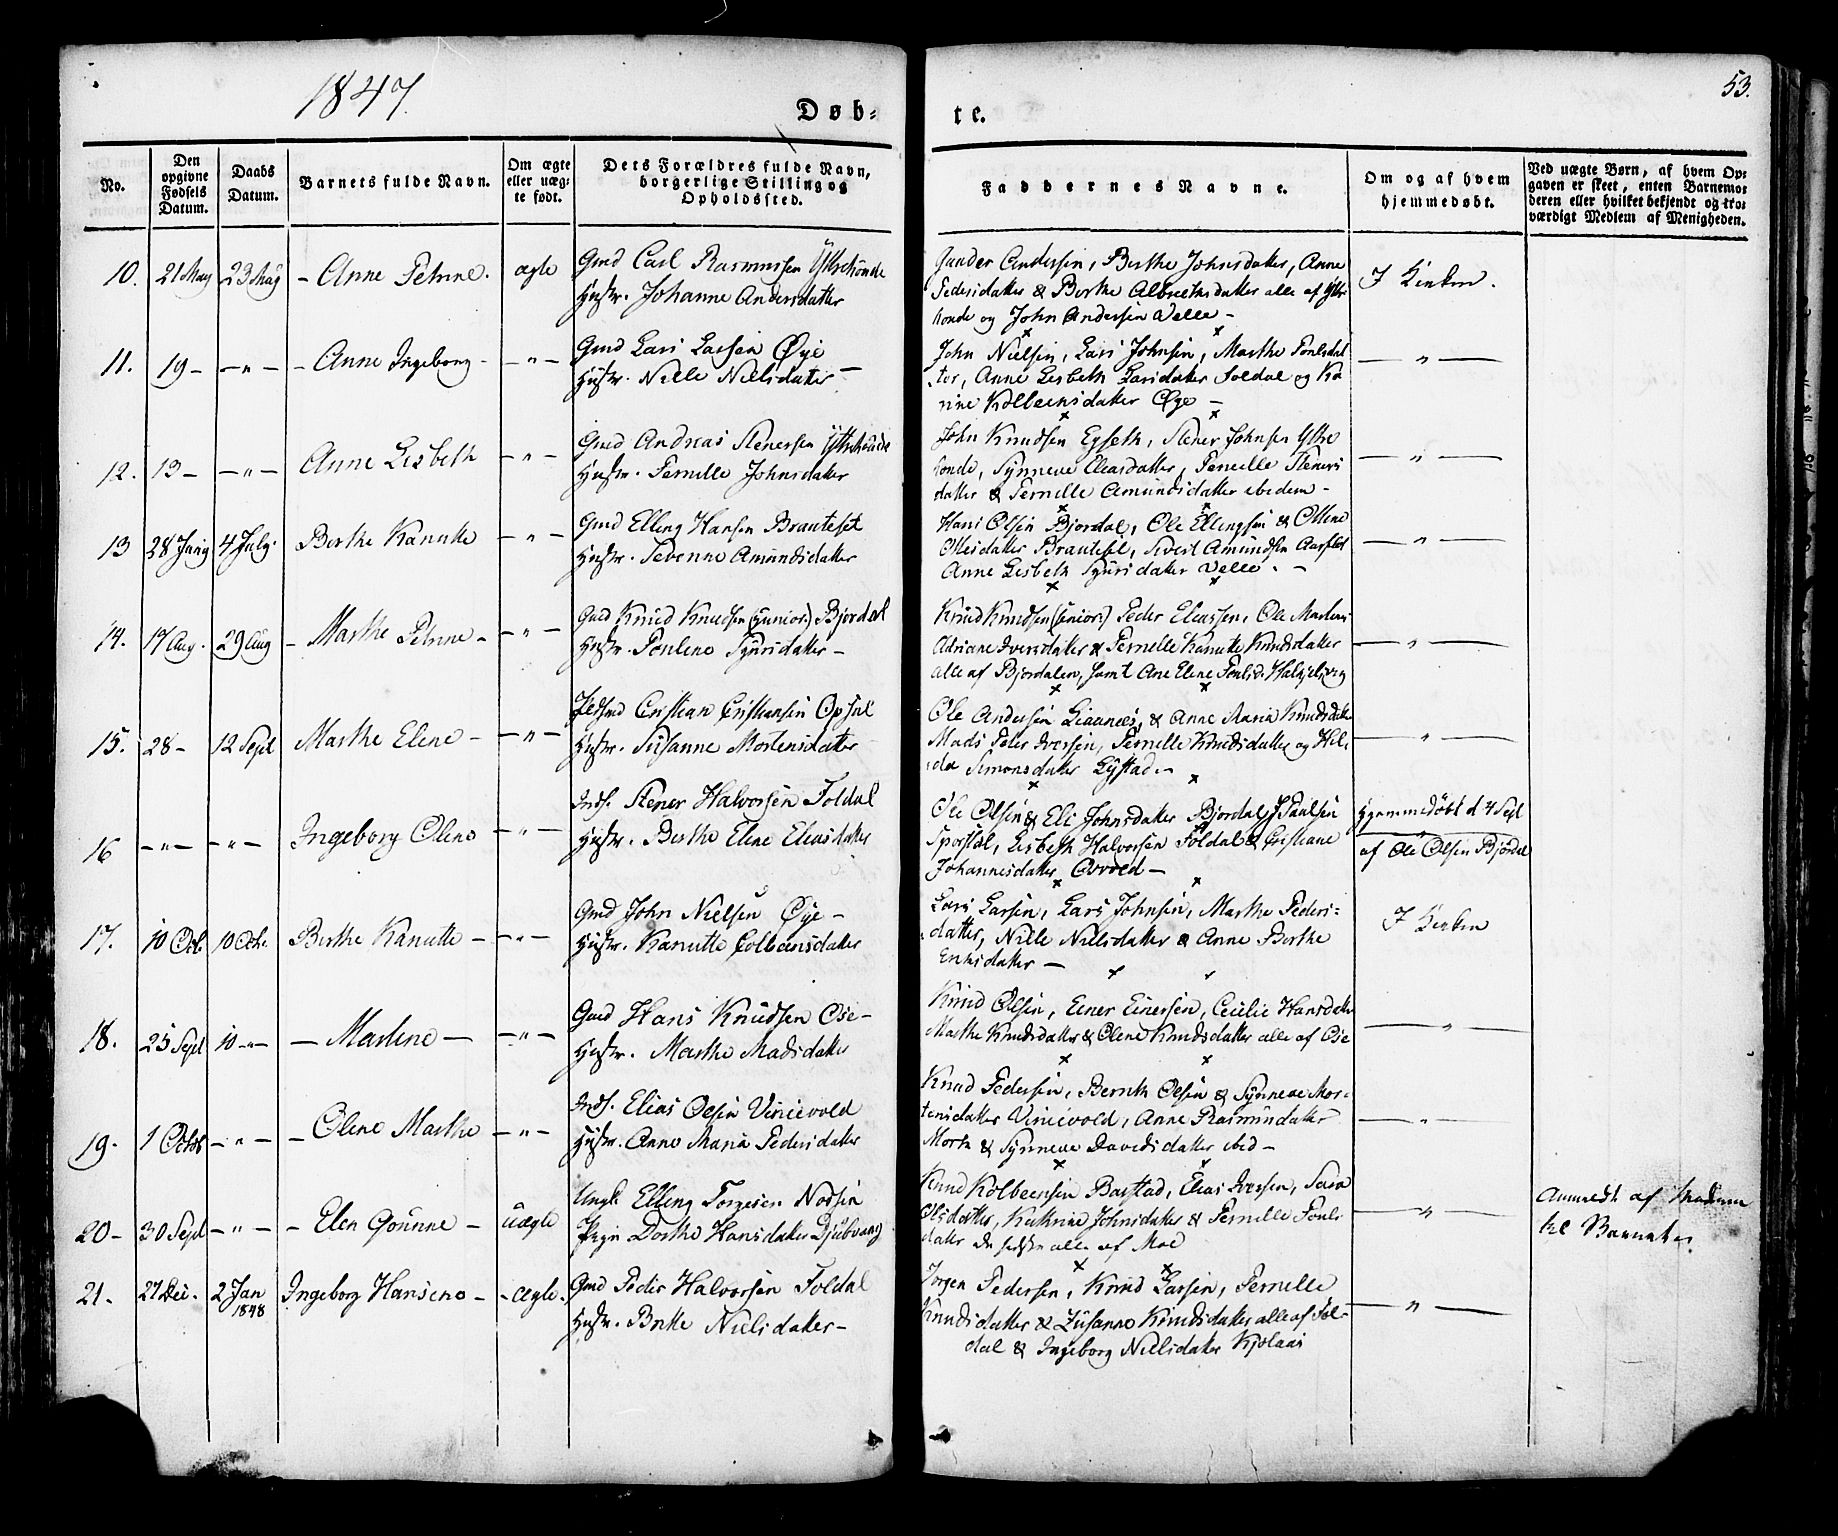 1847.
53.
Døb-
te.
No.
Den opgivne Fødsels Datum.
Daabs Datum.
Barnets fulde Navn.
Om ægte eller uæg-te født.
Dets Forældres fulde Navn, borgerlige Stilling og Opholdssted.
Faddernes Navne.
Om og af hvem hjemmedøbt.
Ved uægte Børn, af hvem Op-gaven er skeet, enten Barnemo-deren eller hvilket bekjendt og tro-værdigt Medlem af Menigheden.
10. 21 May 23 May - Anne Petrine. ægte
Gmd Carl Rasmussen Ytrehonde
Hustr. Johanne Andersdatter
Gunder Andersen, Berthe Johnsdatter, Anne
Pedersdatter & Berthe Albrethsdatter alle af Ytre
honde og John Andersen Velle -
I Kirken.
11. 19 - - " - - Anne Ingeborg - - " -
Gmd Lars Larsen Øye
Hustr. Nille Nielsdatter -
John Nielsen, Lars Johnsen, Marthe Poulsdat
ter, Anne Lisbeth Larsdatter Foldal og Ka
rine Kolbeensdatter Øye -
- " -
12. 13 - - " - Anne Lisbeth - " -
Gmd Andreas Stenersen Ytrehonde
Hustr. Pernille Johnsdatter
John Knudsen Egseth, Stener Johnsen Ytre
honde, Synneve Eliasdatter, Pernille Steners
datter & Pernille Amundsdatter ibidem -
- " -
13 28 Juny 4 July. Berthe Kanutte - " -
Gmd Elling Hansen Brauteset
Hustr. Sevenne Amundsdatter
Hans Olsen Bjordal, Ole Ellingsen & Oline
Ottesdatter Brautesl, Sivert Amundsen Aarflot
Anne Lisbeth Syvertsdatter Velle. -
- " -
14. 17 Aug. 29 Aug - Marthe Petrine - - " -
Gmd Knud Knudsen (junior.) Bjordal
Hustr. Pouline Sjursdatter -
Knud Knudsen (senior.) Peder Eliassen, Ole Martens
Adriane Iversdatter & Pernelle Kanutte Knudsdatter
alle af Bjordalen, samt Ane Elene Poulsd. Halkjelsvig
- " -
15. 28 - 12 Sept Marthe Elene - - " -
Cristian Cristiansen Opsal
Hustr. Susanne Mortensdatter
Ole Andersen Liaanes, & Anne Maria Knudsdatter
Mads Peter Iversen, Pernelle Knudsdatter og Hil-
da Simonsdatter Lystad -
- " -
16 - " - - " - Ingeborg Oline - " -
Inds. Stener Halvorsen Foldal
Hustr. Berthe Eline Eliasdatter
Ole Olsen & Eli Johnsdatter Bjordal, J Paulsen
Sporstøl, Lisbeth Halvorsen Foldal & Cristiane
Johannesdatter Orvold -
Hjemmedøbt d 4 Sept
af Ole Olsen Bjordal
17. 10 Octb. 10 Octb. Berthe Kanutte - - " -
Gmd John Nielsen Øye -
Hustr. Kanutte Colbeensdatter
Lars Larsen, Lars Johnsen, Marthe Peders-
datter, Nille Nielsdatter & Anne Berthe
Eriksdatter -
I Kirken
18. 25 Sept 10 - " - - Martine - - " -
Gmd Hans Knudsen Ose -
Hustr. Marthe Madsdatter
Knud Olsen, Einer Einersen, Cecilie Hansdatter
Marthe Knudsdatter & Olene Knudsdatter alle af Ose
- " -
19. 1 Octbr - " - - Oline Marthe - " -
Inds. Elias Olsen Vinievold
Hustr. Anne Maria Pedersdatter
Knud Pedersen, Bernth Olsen & Synneve Mor-
tensdatter Vinievold, Anne Rasmusdatter
Mork & Synneve Davidsdatter ibid -
- " -
20 - 30 Sept - " - - Elen Gounne - uægte
Ungk Elling Torgesen Nossen
Pige Dorthe Hansdatter Djubvang
Knud Kolbeensen Barstad, Elias Iversen, Sara
Olsdatter, Kathrine Johnsdatter & Pernille Pouls
datter alle af Moe
- " -
Anmeldt af Moderen
til Barnet.
21 - 27 Dec. 2 Jan 1848 Ingeborg Hansine - - ægte.
Gmd Peder Halvorsen Foldal
Hustr. Berthe Nielsdatter -
Jørgen Pedersen, Knud Larsen, Pernelle
Knudsdatter & Zusanne Knudsdatter alle af Fol-
dal & Ingeborg Nielsdatter Kjolaas
- " -